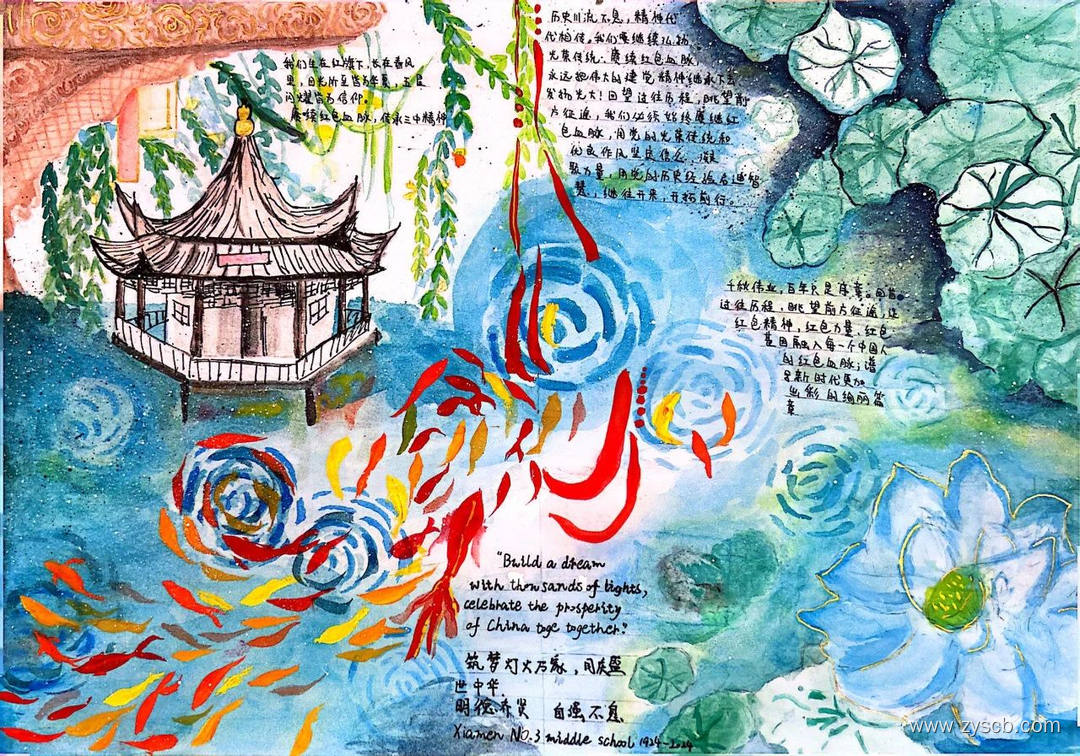 我们生在红旗下,长在春风
里,目光所至皆为华夏,五星
闪耀皆为信仰。
赓续红色血脉,传承三中精神
历史川流不息,精神代
代相传。我们要继续弘扬
光荣传统、赓续红色血脉,
永远把伟大的建党精神继承下去
发扬光大!回望过往历程,眺望前
方征途,我们必须始终赓续红
色血脉,用党的光荣传统和
优良作风坚定信念、凝聚
力量,用党的历史经验启迪智
慧,继往开来,开拓前行。
千秋伟业,百年只是序章。回首
过往历程,眺望前方征途,让
红色精神,红色力量,红色
基因融入每一个中国人
的红色血脉,谱
写新时代更加
出彩的绚丽篇
章
"Build a dream
with thousands of lights,
celebrate the prosperity
of China toge together."
筑梦灯火万家,同庆盛
世中华.
明德乔贤 自强不息
Xiamen NO.3 middle school 1924-2024
www.zyscb.com